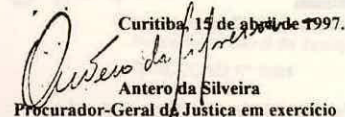 Curitiba, 15 de abril de 1997.
Antero da Silveira
Procurador-Geral de Justiça em exercício